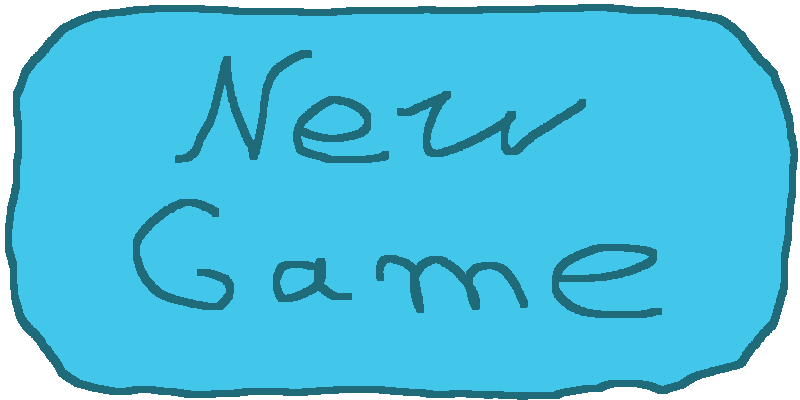 New
Game